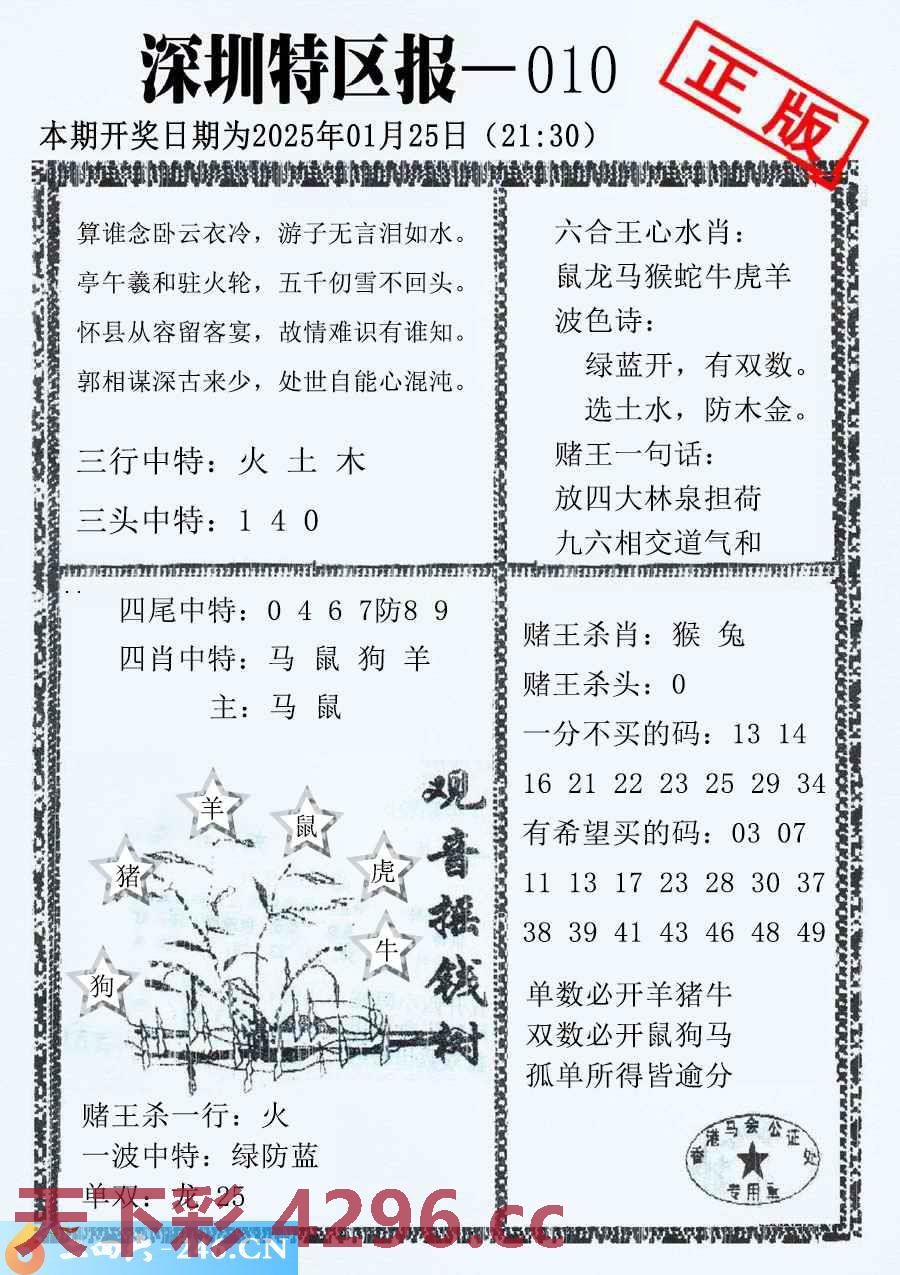 深圳特区报—010
正版
本期开奖日期为2025年01月25日（21:30）
算谁念卧云衣冷，游子无言泪如水。
亭午羲和驻火轮，五千仞雪不回头。
怀县从容留客宴，故情难识有谁知。
郭相谋深古来少，处世自能心混沌。
三行中特：火 土 木
三头中特：1 4 0
六合王心水肖：
鼠龙马猴蛇牛虎羊
波色诗：
绿蓝开，有双数。
选土水，防木金。
赌王一句话：
放四大林泉担荷
九六相交道气和
四尾中特：0 4 6 7防8 9
四肖中特：马 鼠 狗 羊
主：马 鼠
羊
鼠
猪
虎
牛
狗
观音摇钱树
赌王杀一行：火
一波中特：绿防蓝
单双：龙 25
赌王杀肖：猴 兔
赌王杀头：0
一分不买的码：13 14
16 21 22 23 25 29 34
有希望买的码：03 07
11 13 17 23 28 30 37
38 39 41 43 46 48 49
单数必开羊猪牛
双数必开鼠狗马
孤单所得皆逾分
香港马会公证处
专用章
天下彩 4296.cc
246.CN